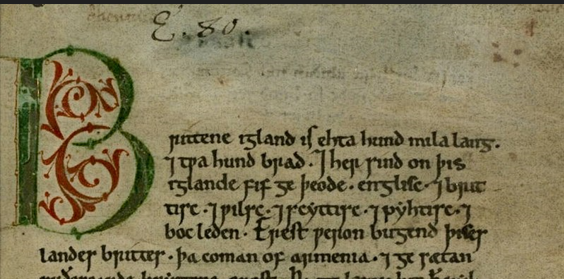 E. 80.
B
rittene igland is ehta hund mila lang.
⁊ tpa hund brad. ⁊ her sind on þis
iglande fif ge þeode. englisc. ⁊ brit
tisc. ⁊ pilsc. ⁊ scyttisc. ⁊ pyhtisc. ⁊
boc leden. Erest peron bugend þises
landes brittes. þa coman of armenia. ⁊ ge sætan